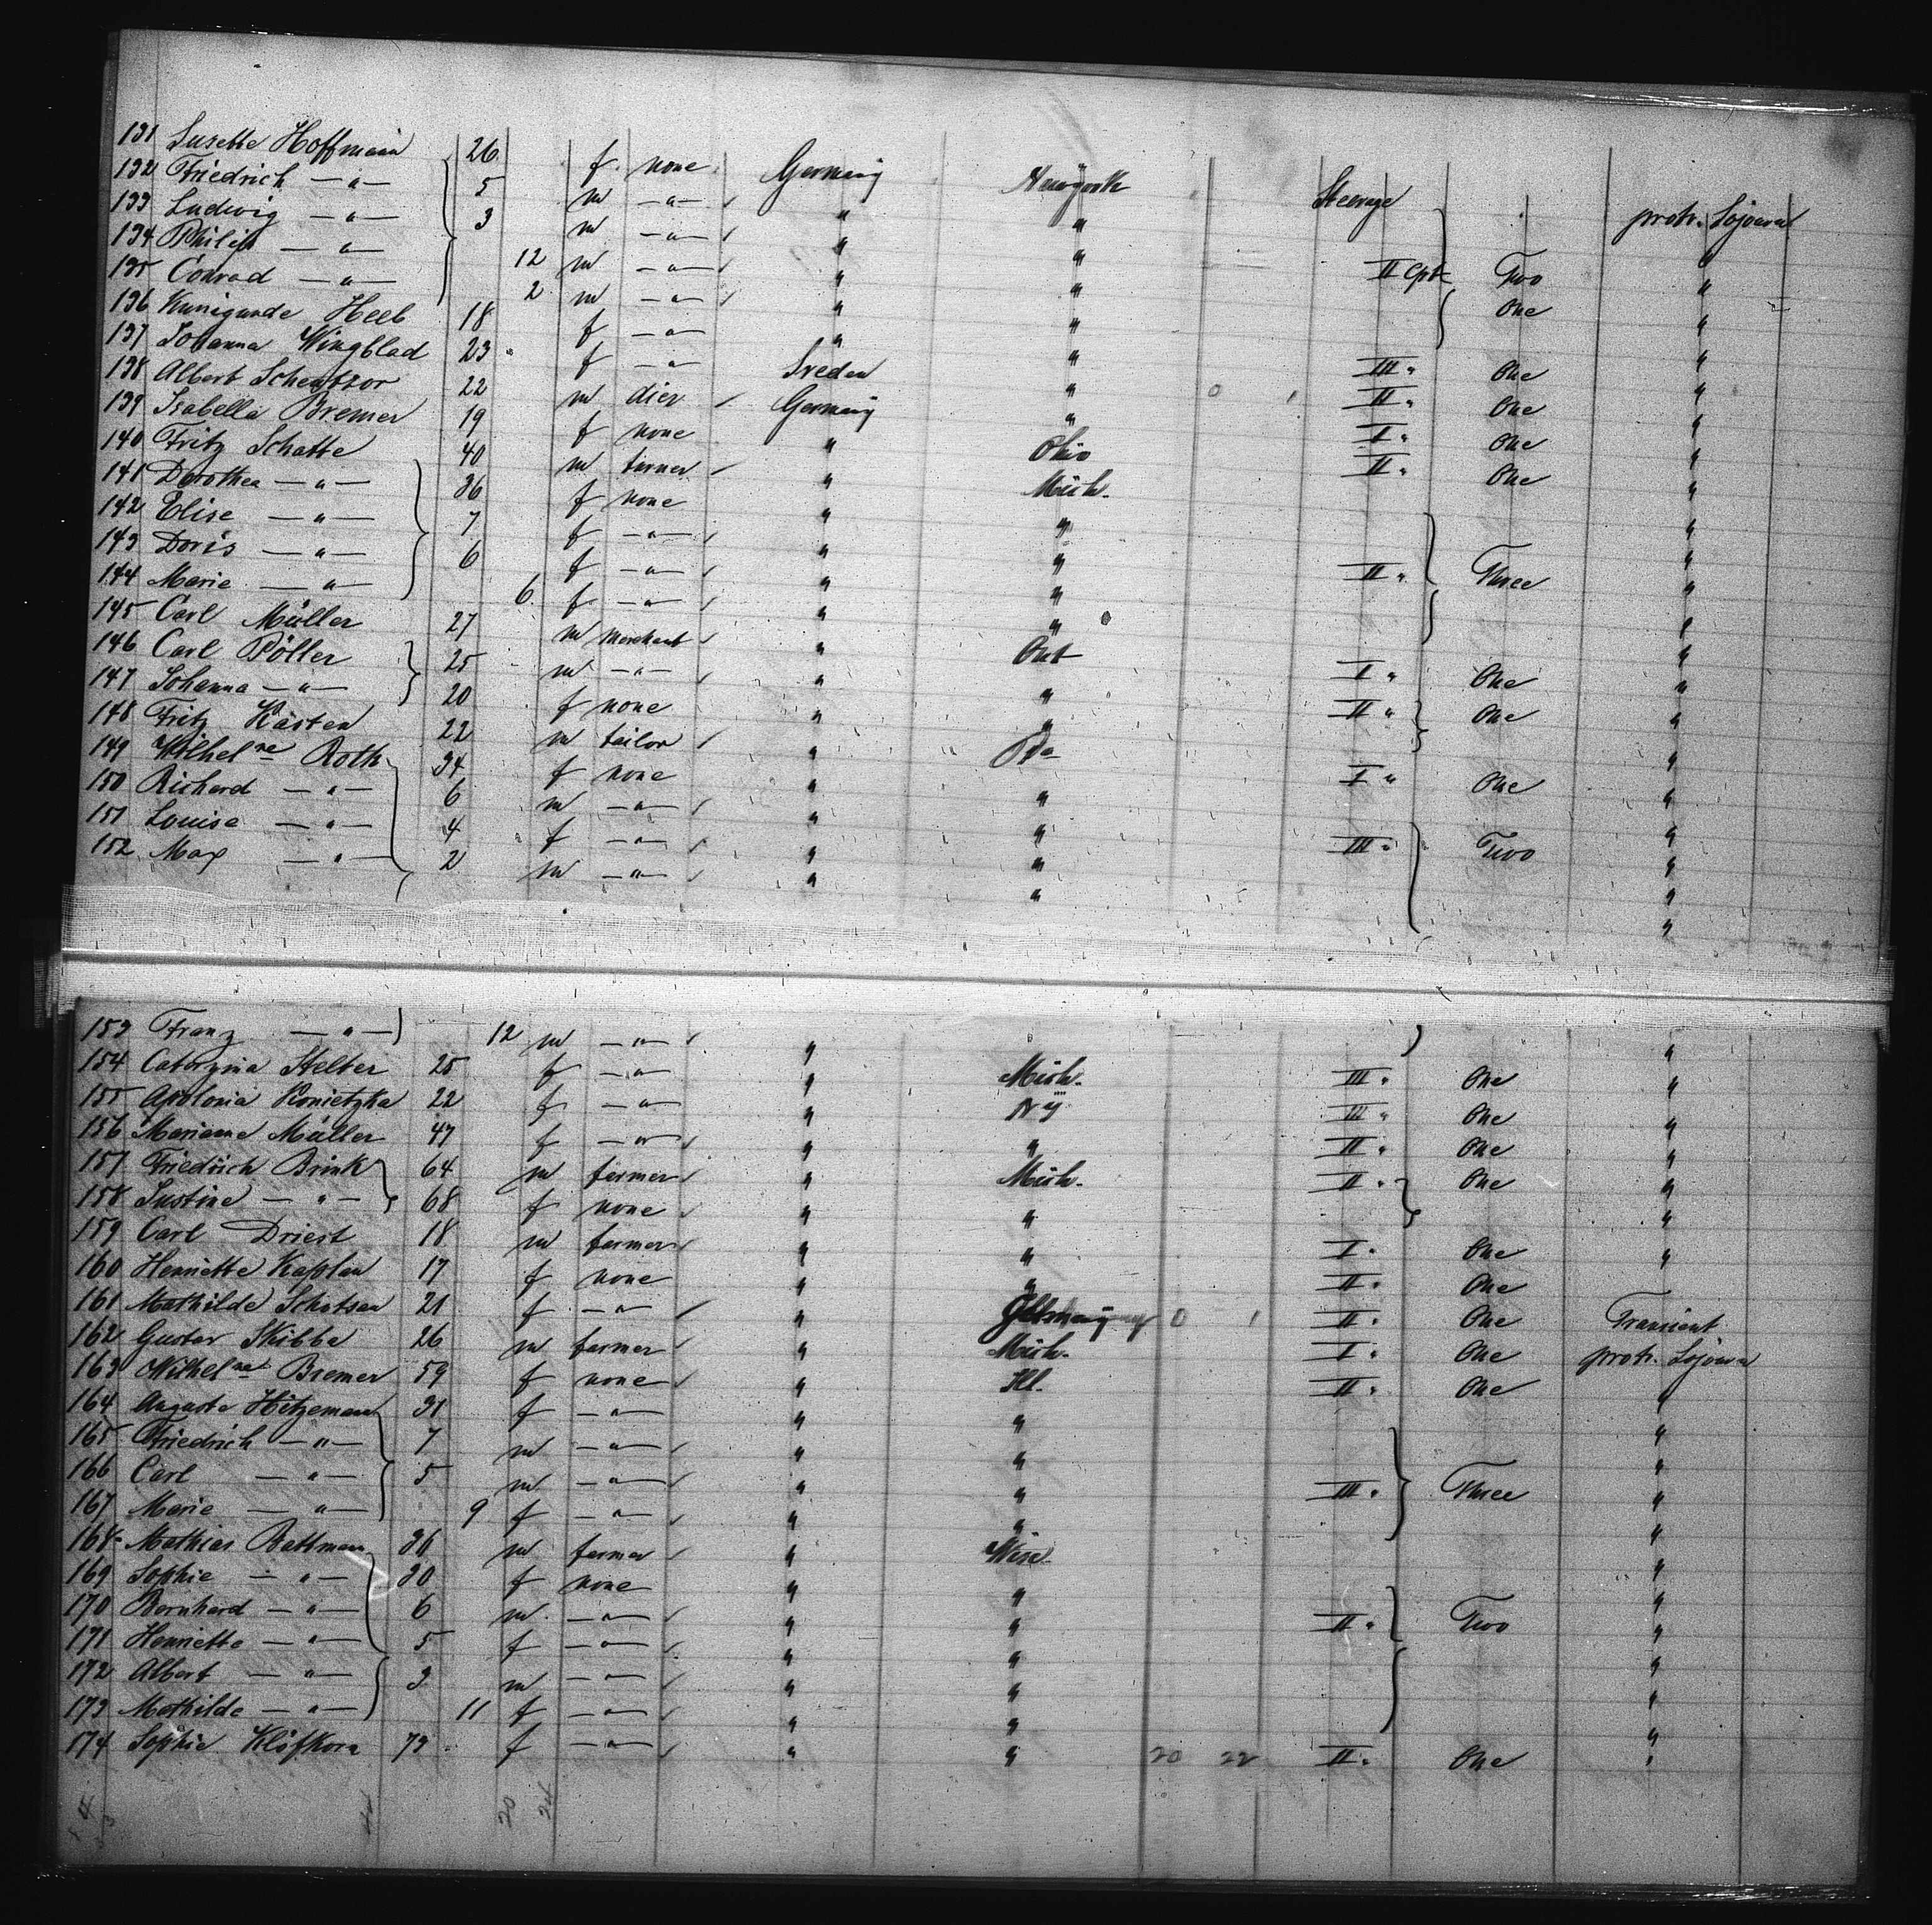 131 Susette Hoffmann 26 f. none Germany Newyork Steerage protr. Sojourn
132 Friedrich — " — 5 m — " — " " "
133 Ludwig — " — 3 m — " — " " II Cpt Two "
134 Philipp — " — 12 m — " — " " "
135 Conrad — " — 2 m — " — " " "
136 Kunigunde Heeb 18 f — " — " " One "
137 Johanna Wingblad 23 f — " — Sveden " III " One "
138 Albert 22 m dier Germany " 0 II " One "
139 Isabella Bremer 19 f none " Ohio I " One "
140 Fritz Schatte 40 m farmer " Mich. II " One "
141 Dorothea — " — 36 f none " " "
142 Elise — " — 7 f — " — " " "
143 Doris — " — 6 f — " — " " II " Three "
144 Marie — " — 6 f — " — " " "
145 Carl Müller 27 m merchant " I " One "
146 Carl 25 m — " — " " II " One "
147 Johanna — " — 20 f none " " "
148 Fritz Kästen 22 m tailor " Pa I " One "
149 Wilhelne Roth 34 f none " " "
150 Richard — " — 6 m — " — " " "
151 Louise — " — 4 f — " — " " III " Two "
152 Max — " — 2 m — " — " " "
153 Franz — " — 12 m — " — " "
154 Stelter 25 f — " — " Mich. III " One "
155 Apolonia Konietzka 22 f — " — " NY III " One "
156 Mariane Müller 47 f — " — " " II " One "
157 Friedrich Brink 64 m farmer " Mich. II " One "
158 Justine — " — 68 f none " " "
159 Carl Driest 18 m farmer " " I " One "
160 Henriette Kaplan 17 f none " " II " One
161 Mathilde 21 f — " — " 0 II " One Transient
162 Gustav Skibba 26 m farmer " Mich. I " One protr. Sojourn
163 Wilhelne Bremer 59 f none " Ill. II " One "
164 Auguste Hitzemann 31 f — " — " " "
165 Friedrich — " — 7 m — " — " " "
166 Carl — " — 5 m — " — " " III " Three "
167 Marie — " — 9 f — " — " " "
168 Mathias 36 m farmer " Wisc. "
169 Sophie — " — 30 f none " " "
170 Bernhard — " — 6 m — " — " " II " Two "
171 Henriette — " — 5 f — " — " " "
172 Albert — " — 3 m — " — " " "
173 Mathilde — " — 11 f — " — " " "
174 Sophie 73 f — " — " " 20 22 II " One "
20 24